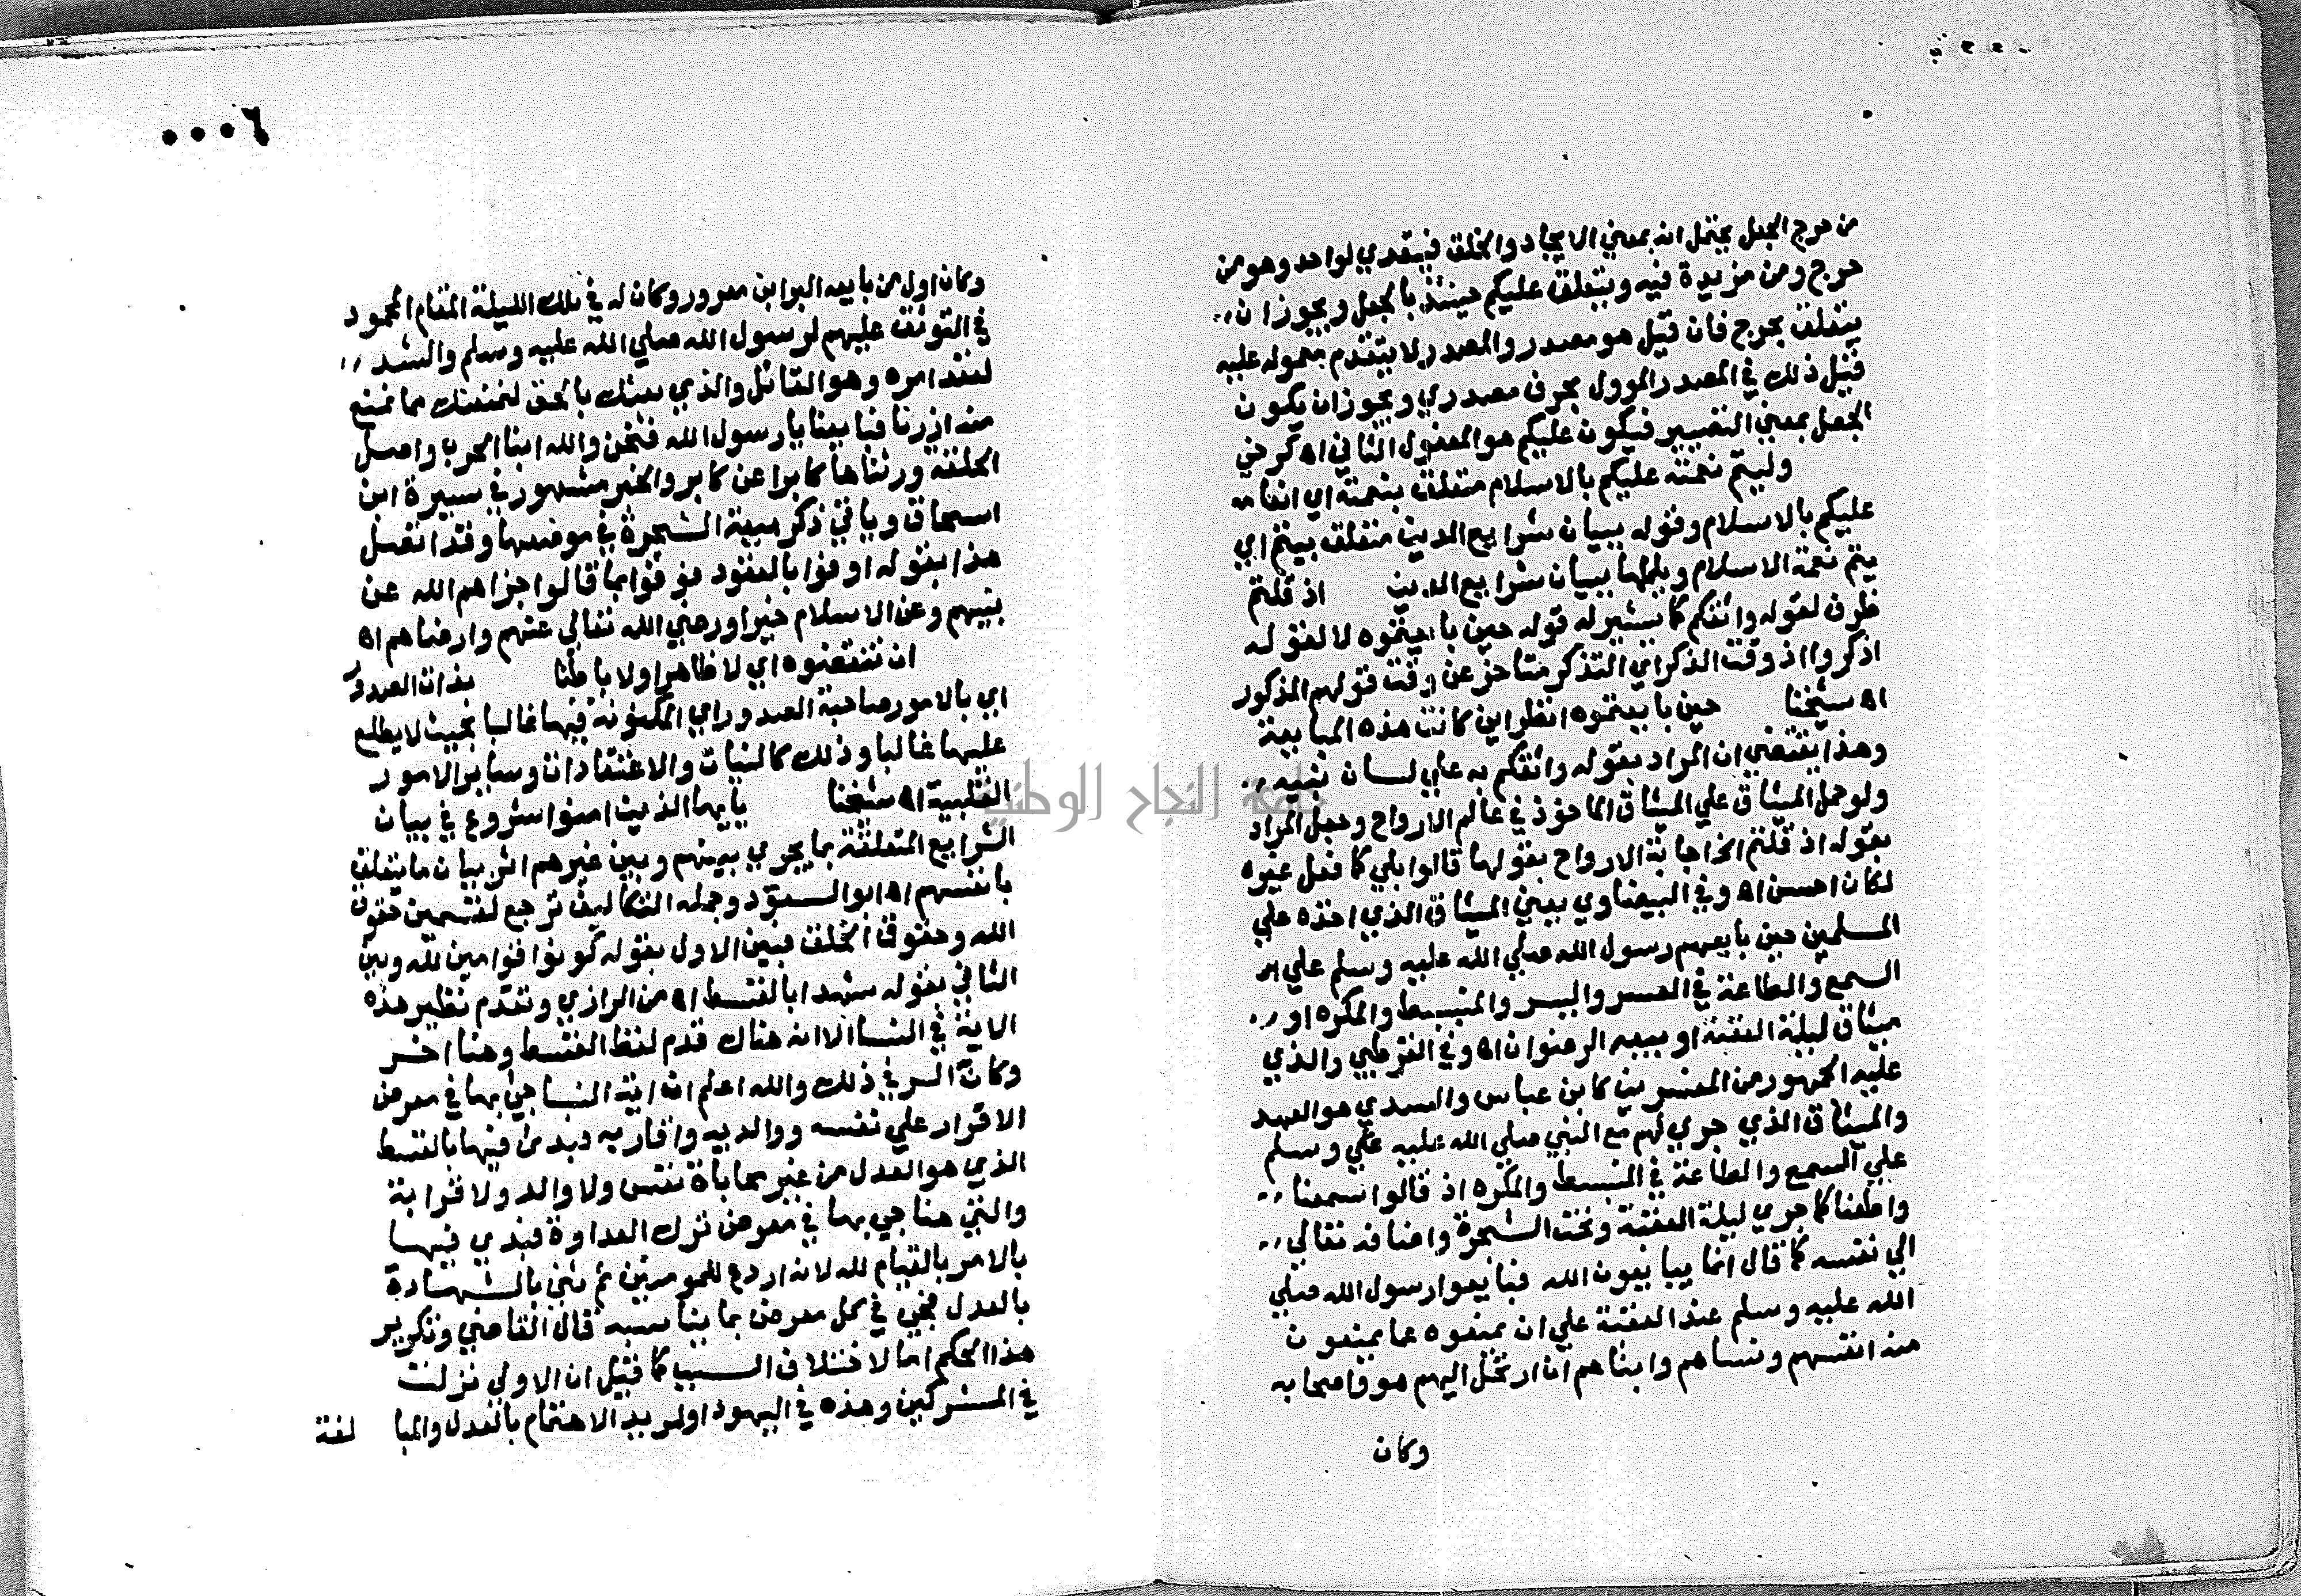 من حرج الجعل يحتمل انه بمعني الايجاد والخلق فيتعدي لواحد وهو من
حرج ومن مزيدة فيه ويتعلق عليكم حينئذ بالجعل ويجوز ان
يتعلق بحرج فان قيل هو مصدر والمصدر لا يتقدم معموله عليه
قيل ذلك في المصدر الموول بحرف مصدري ويجوز ان يكون
الجعل بمعني التصيير فيكون عليكم هو المفعول الثاني اه كرخي
وليتم نعمته عليكم بالاسلام متعلق بنعمته اي انعامه
عليكم بالاسلام وقوله ببيان شرايع الدين متعلق بيتم اي
يتم نعمة الاسلام ويكملها ببيان شرايع الدين اذ قلتم
ظرف لقوله واثقكم كما يشير له قوله حين بايعتموه لا لقوله
اذكروا اذ وقت الذكر اي التذكر متاخر عن وقت قولهم المذكور
اه شيخنا حين بايعتموه انظر اين كانت هذه المبايعة
وهذا يقتضي ان المراد بقوله واثقكم به علي لسان نبيه
ولو حمل الميثاق علي الميثاق الماخوذ في عالم الارواح وجعل المراد
بقوله اذ قلتم الخ اجابة الارواح بقولها قالوا بلي كما فعل غيره
لكان احسن اه وفي البيضاوي يعني الميثاق الذي اخذه علي
المسلمين حين بايعهم رسول الله صلي الله عليه وسلم علي
السمع والطاعة في العسر واليسر والمنبسط والمكره او
ميثاق ليلة العقبة او بيعة الرضوان اه وفي القرطبي والذي
عليه الجمهور من المفسرين كابن عباس والسدي هو العهد
والميثاق الذي جري لهم مع النبي صلي الله عليه علي وسلم
علي السمع والطاعة في المنبسط والمكره اذ قالوا سمعنا
واطعنا كما جري ليلة العقبة وتحت الشجرة واضافه تعالي
الي نفسه كما قال انما يبايعون الله فبايعوا رسول الله صلي
الله عليه وسلم عند العقبة علي ان يمنعوه مما يمنعون
منه انفسهم ونساهم وابناهم ان ارتحل اليهم هو واصحابه
وكان
٦٠٠٠
وكان اول من بايعه البرا ابن معرور وكان له في تلك الليلة المقام المحمود
في التوثق عليهم لرسول الله صلي الله عليه وسلم والشد
لعقد امره وهو القائل والذي بعثك بالحق لنمنعنك مما نمنع
منه ازرنا فبايعنا يا رسول الله فنحن والله ابنا الحرب واصل
الحلقة ورثناها كابرا عن كابر والخبر مشهور في سيرة ابن
اسحاق وياتي ذكر بيعة الشجرة في موضعها وقد اتصل
هذا بقوله اوفوا بالعقود فوفوا بما قالوا جزاهم الله عن
نبيهم وعن الاسلام خيرا ورضي الله تعالي عنهم وارضاهم اه
ان تنقضوه اي لا ظاهرا ولا باطنا بذات الصدور
اي بالامور صاحبة الصدور اي المكنونة فيها غالبا بحيث لا يطلع
عليها غالبا وذلك كالنيات والاعتقادات وساير الامور
القلبية اه شيخنا يا يها الذين امنوا شروع في بيان
الشرايع المتعلقة بما يجري بينهم وبين غيرهم اثر بيان ما يتعلق
بانفسهم اه ابو السعود وجملة التكاليف ترجع لقسمين حقوق
الله وحقوق الخلق فبين الاول بقوله كونوا قوامين لله وبين
الثاني بقوله شهدا بالقسط اه من الرازي وتقدم نظير هذه
الاية في النسا الا انه هناك قدم لفظ القسط وهنا اخر
وكان السر في ذلك والله اعلم ان اية النسا جي بها في معرض
الاقرار علي نفسه ووالديه واقاربه فبدئ فيها بالقسط
الذي هو العدل من غير محاباة نفس ولا والد ولا قرابة
والتي هنا جي بها في معرض ترك العداوة فبدي فيها
بالامر بالقيام لله لانه اردع للمومنين ثم ثني بالشهادة
بالعدل فجي في كل معرض بما يناسبه قال القاضي وتكرير
هذا الحكم اما لاختلاف السبب كما قيل ان الاولي نزلت
في المشركين وهذه في اليهود او لمزيد الاهتمام بالعدل والمبا لغة
جامعة النجاح الوطنية